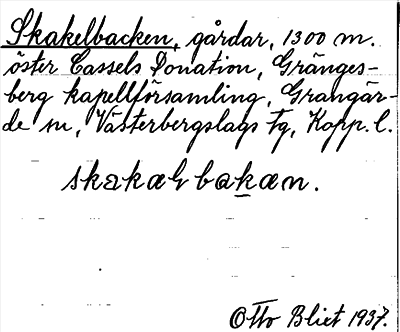 Skakelbacken, gårdar, 1300 m.
öster Cassels Donation, Gränges-
berg kapellförsamling, Grangär-
de sn, Västerbergslags tg, Kopp. l.
skakæłbakæn.
Otto Blixt 1937.